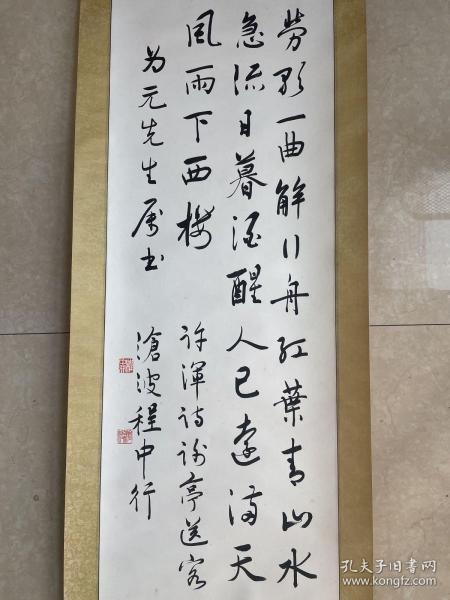 勞歌一曲解行舟紅葉青山水
急流日暮酒醒人已遠滿天
風雨下西樓
許渾詩謝亭送客
为元先生属书
滄波程中行
孔夫子旧书网
www.kongfz.com